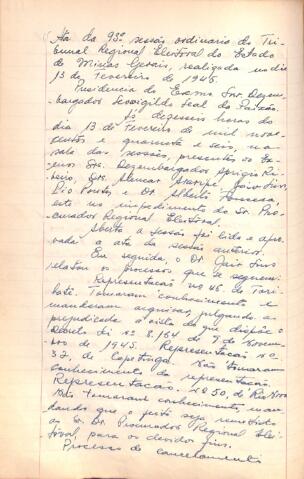 Ata da 93ª sessão ordinaria do Tri-
bunal Regional Eleitoral do Estado
de Minas Gerais, realizada no dia
13 de Fevereiro de 1946.
Presidencia do Exmo Snr. Desem-
bargador Leovigildo Leal da Paixão.
Ás dezesseis horas do
dia 13 de Fevereiro de mil nove-
centos e quarenta e seis, na
sala das sessões, presentes os Ex-
mos Srs. Desembargadores Aprigio Ri-
beiro, Drs. Alencar Araripe, José
Pio Porto, e Dr. Alberto Fonseca,
este no impedimento do Sr. Pro-
curador Regional Eleitoral.
Aberta a sessão foi lida e apro-
vada a ata da sessão anterior.
Em seguida, o Dr. José
relatou os processos que se seguem:
Representação nº 46, de
Tomaram conhecimento e
mandaram arquivar, julgando-a
prejudicada á vista do que dispõe o
Decreto lei nº 8.164 de 9 de Novem-
bro de 1945. Representação nº
32, de Capetinga. Não tomaram
conhecimento da representação.
Representação 2050, de
Não tomaram conhecimento, man-
dando que o feito seja remetido
ao Sr. Dr. Procurador Regional Elei-
toral, para os devidos fins.
Processo de cancelamento